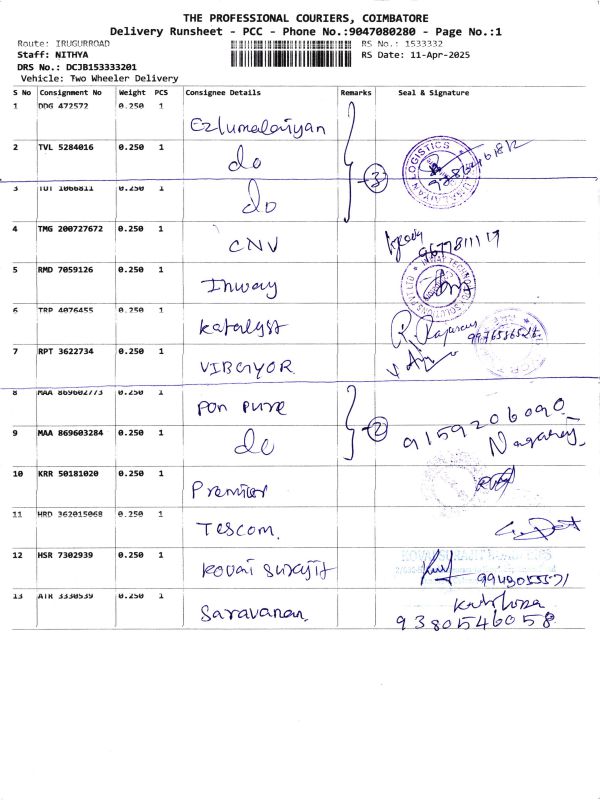 THE PROFESSIONAL COURIERS, COIMBATORE
Delivery Runsheet - PCC - Phone No.:9047080280 - Page No.:1
Route: IRUGURROAD RS No.: 1533332
Staff: NITHYA RS Date: 11-Apr-2025
DRS No.: DCJB153333201
Vehicle: Two Wheeler Delivery
S No Consignment No Weight PCS Consignee Details Remarks Seal & Signature
1 DDG 472572 0.250 1
2 TVL 5284016 0.250 1 do
3 TUT 1066811 0.250 1 do 3
4 TMG 200727672 0.250 1 CNV
5 RMD 7059126 0.250 1 Inway
6 TRP 4076455 0.250 1 Katalyst
7 RPT 3622734 0.250 1 VIBGYOR
8 MAA 869602773 0.250 1 Pon Pure
9 MAA 869603284 0.250 1 do 2 9159206090 Nagaraj
10 KRR 50181020 0.250 1 Premier
11 HRD 362015068 0.250 1 Tescom
12 HSR 7302939 0.250 1 Kovai Surajit
13 ATR 3330539 0.250 1 Saravanan 9380546058